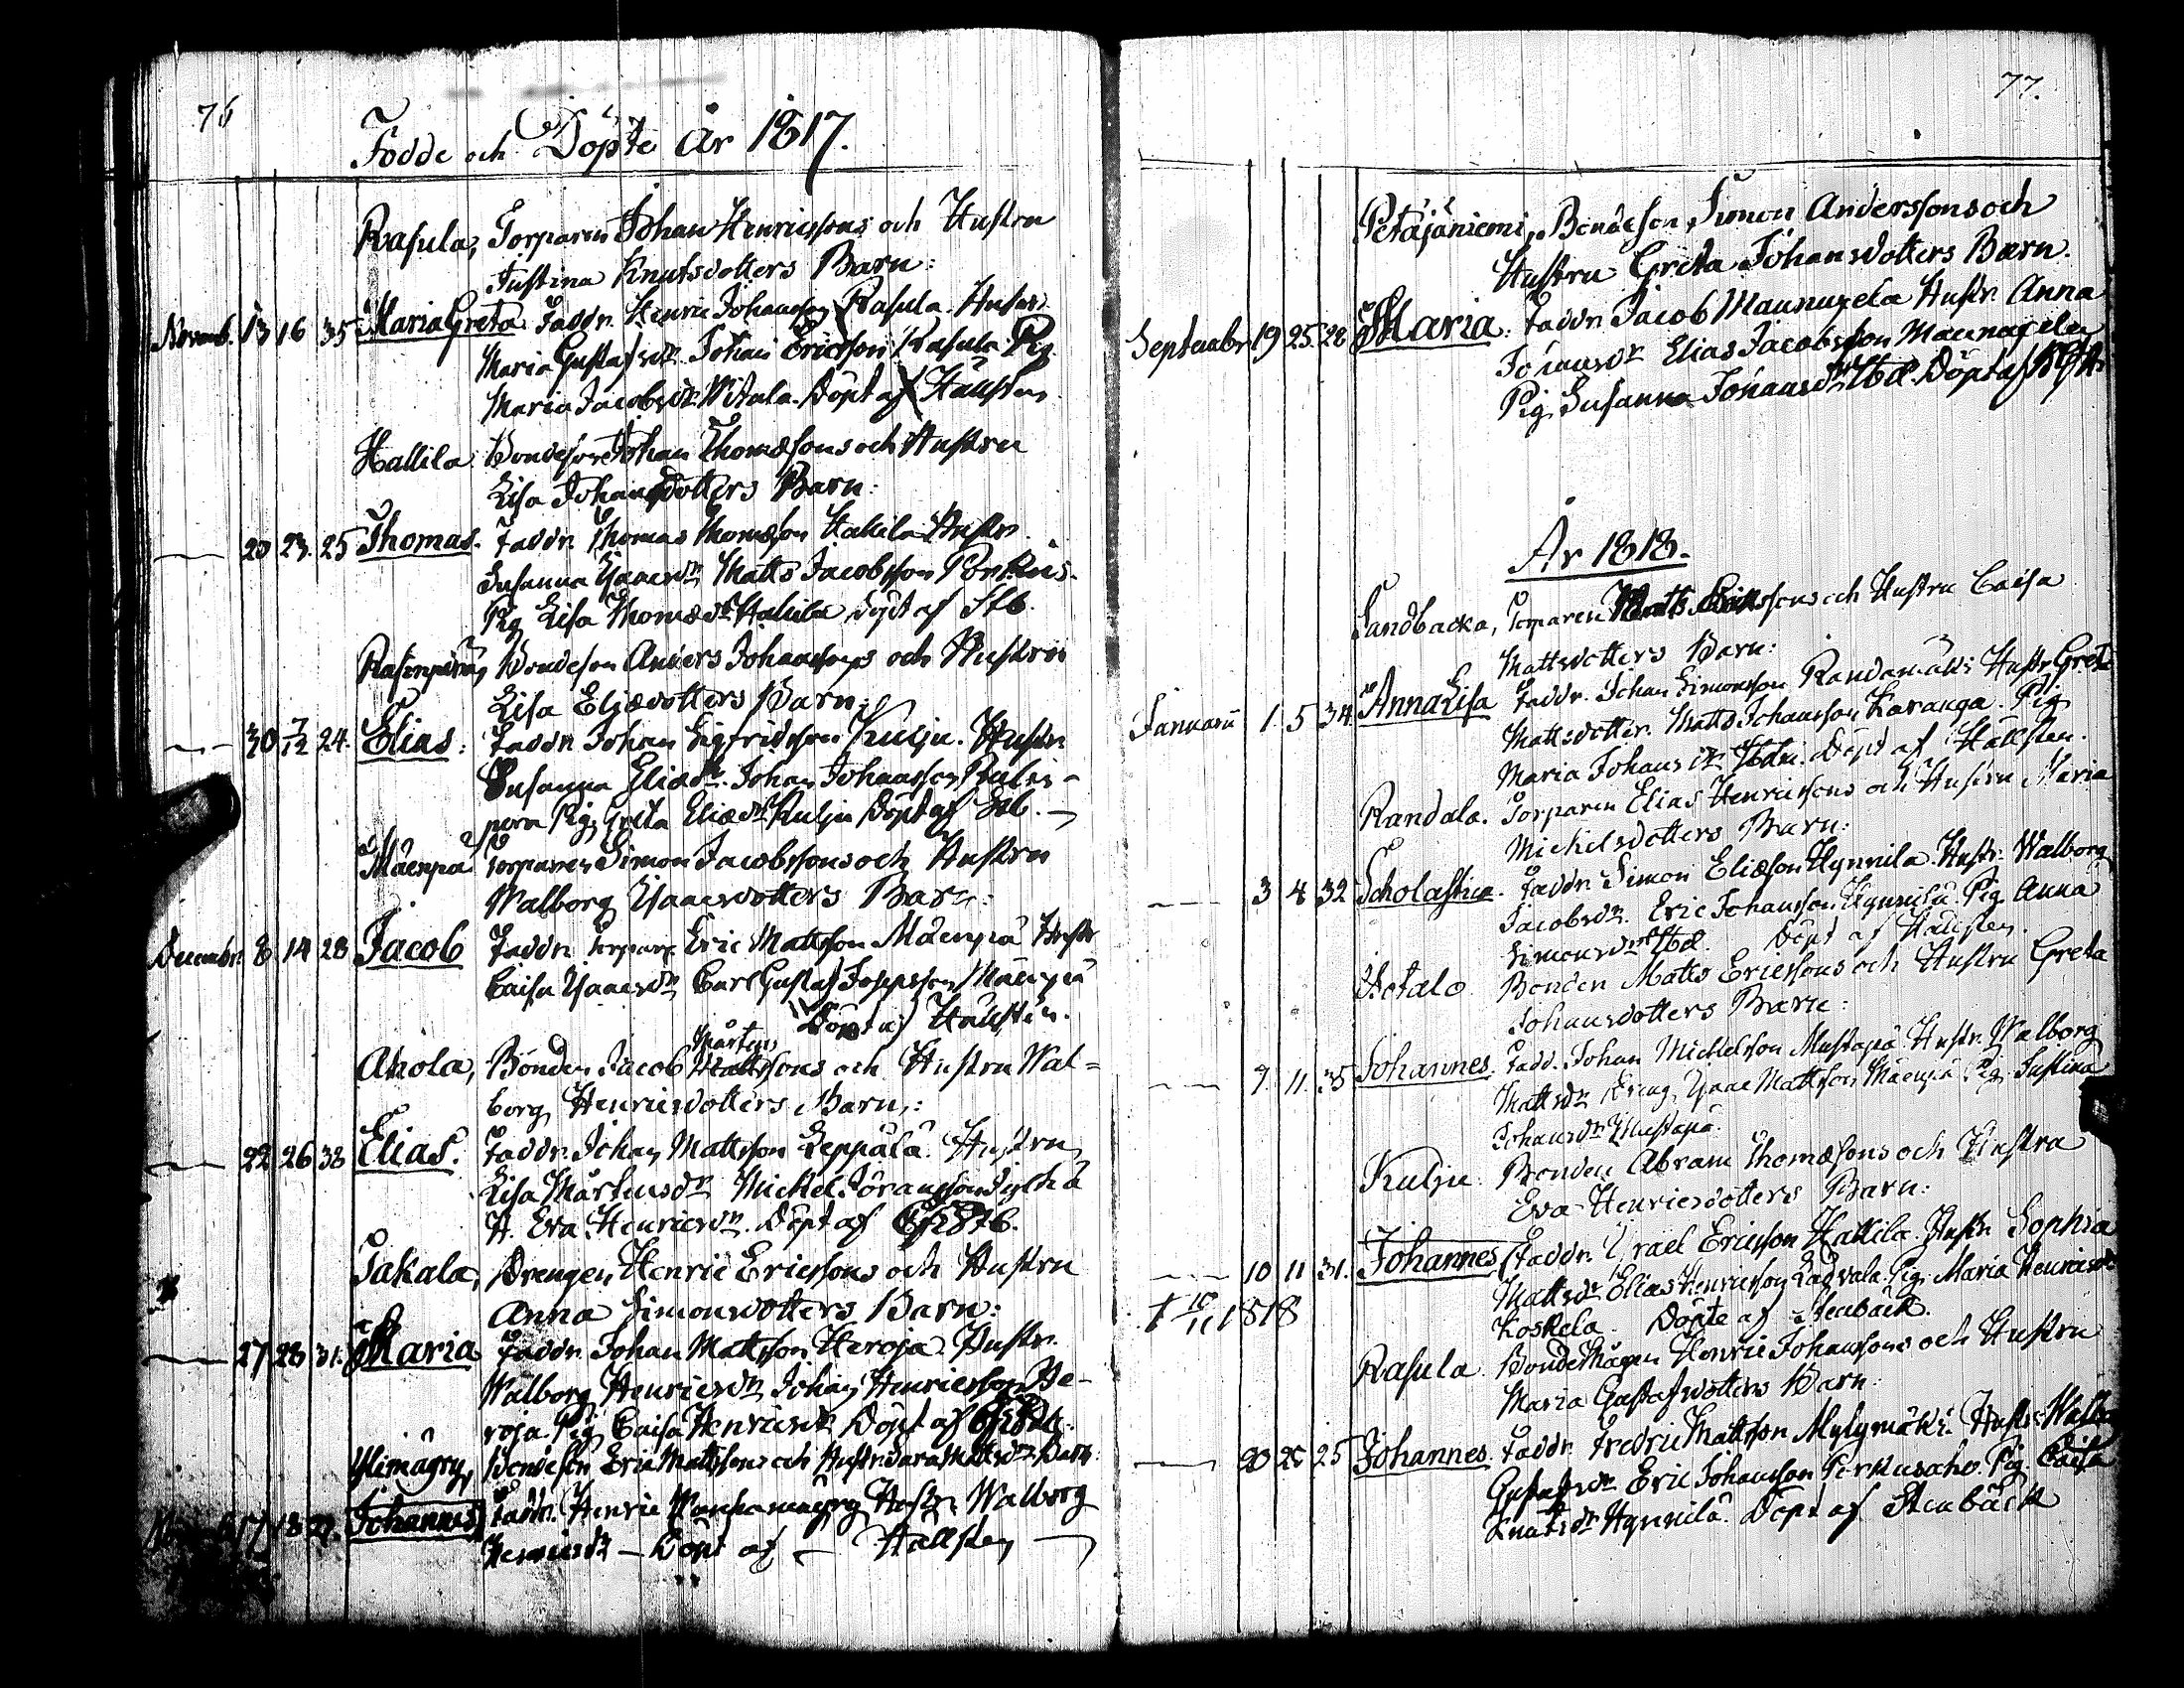 76
Födde och Döpte År 1817.
Rasula, Torparen Johan Henricssons och Hustru
Justina Knutsdotters Barn:
Novemb. 13 16 35 Maria Greta. Faddr. Henric Johansson Rasula. Hustr.
Maria Gustafsdr. Johan Ericsson Rasula Pig.
Maria Jacobsdr. Döpt af Hällsten
Hallila Bondeson Johan Thomæsons och Hustru
Lisa Johansdotters Barn:
20 23. 25 Thomas. Faddr. Thomas Thomæson Hallila Hustr.
Susanna Isaacsdr. Matts Jacobsson
Pig. Lisa Thomædr. Hallila döpt af Stb.
Bondeson Anders Johanssons och Hustru
Lisa Eliædotters Barn:
30 7/12 24. Elias: Faddr. Johan Sigfridsson Kulju. Hustr.
Susanna Eliædr. Johan Johansson
Pig. Greta Eliædr. Kulju Döpt af Stb.
Mäenpä Torparen Simon Jacobssons och Hustru
Walborg Isaacsdotters Barn:
Decembr. 8 14 28 Jacob Faddr. Eric Mattsson Mäenpä Hustr.
Caisa Isaacsdr. Carl Gustaf Josepsson Mäenpä
Döpt af Hällsten.
Mårtens
Ahola, Bonden Jacob Mattssons och Hustru Wal=
borg Henricsdotters Barn:
22 26 38 Elias. Faddr. Johan Mattsson Leppälä. Hustru
Lisa Mårtensdr. Michel Göransson
H. Eva Henricsdr. Döpt af
Takala, Drengen Henric Ericssons och Hustru
Anna Simonsdotters Barn:
27 28 31. Maria Faddr. Johan Mattsson Heroja. Hustr.
Walborg Henricsdr. Johan Henricsson He-
roja. Pig. Caisa Henricsdr. Döpt af
Ylimäyry, Bondeson Eric Mattssons och Hustr. Sara Mattsdr. Barn:
17 18 Johannes Faddr. Henric Wanhamäyry Hustr. Walborg
Henricsdr. — Döpt af — Hällsten —
77.
Petäjäniemi, Bondeson Simon Anderssons och
Hustru Greta Johansdotters Barn.
Septembr 19 25 28 Maria: Faddr. Jacob Maunuxela Hustr. Anna
Johansdr. Elias Jacobsson Maunuxela
Pig. Susanna Johansdr. Ibd. Döpt af
År 1818.
Sandbacka, Torparen Matts Mattssons och Hustru Caisa
Mattsdotters Barn:
Januarii 1. 5 34. Anna Lisa Faddr. Johan Simonsson Randamäki Hustr. Greta
Mattsdotter. Matts Johansson Karanga. Pig.
Maria Johansdr. Ibdm. Döpt af Hällsten.
Randala. Torparen Elias Henricssons och Hustru Maria
Michelsdotters Barn:
3 4 32 Scholastica. Faddr. Simon Eliæson Hynnilä. Hustr. Walborg
Jacobsdr. Eric Johansson Hynnilä. Pig. Anna
Simonsdr. Ibd. Döpt af Hällsten.
Hotalo Bonden Matts Ericssons och Hustru Greta
Johansdotters Barn:
9. 11. 35 Johannes. Fadd. Johan Michelsson Mustapä Hustr. Walborg
Mattsdr. Dreng. Isaac Mattsson Mäenpä Pig. Justina
Johansdr. Mustapä.
Kulju Bonden Abram Thomæsons och Hustru
Eva Henricsdotters Barn:
10 11 31. Johannes, Faddr. Israel Ericsson Hallila. Hustr. Sophia
Mattsdr. Elias Henricsson Ladvala. Pig. Maria Henricsdr.
† 10/11 1818 Koskela. Döpte af Stenbäck.
Rasula Bondemågen Henric Johanssons och Hustru
Maria Gustafsdotters Barn:
20 25 25 Johannes. Faddr. Fredric Mattsson Myllymäki. Hustr. Walb
Gustafsdr. Eric Johansson Perkusaho. Pig. Caisa
Knutsdr. Hynnilä. Döpt af Stenbäck